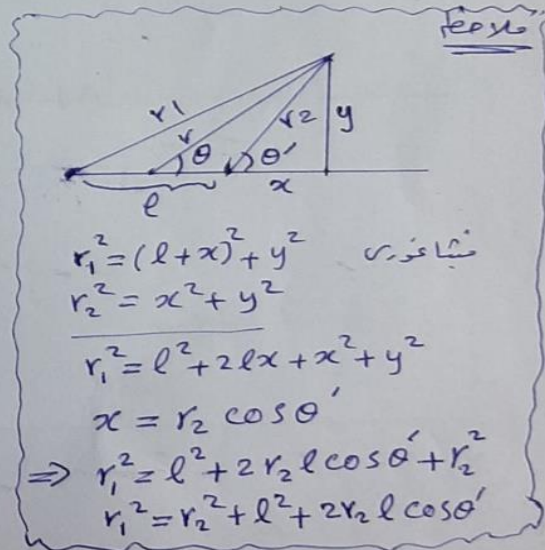 ملاحظة
r1
r
r2
y
θ
θ'
l
x
r₁² = (l+x)² + y² فيثاغورس
r₂² = x² + y²
r₁² = l² + 2lx + x² + y²
x = r₂ cosθ'
⇒ r₁² = l² + 2r₂ l cosθ' + r₂²
r₁² = r₂² + l² + 2r₂ l cosθ'